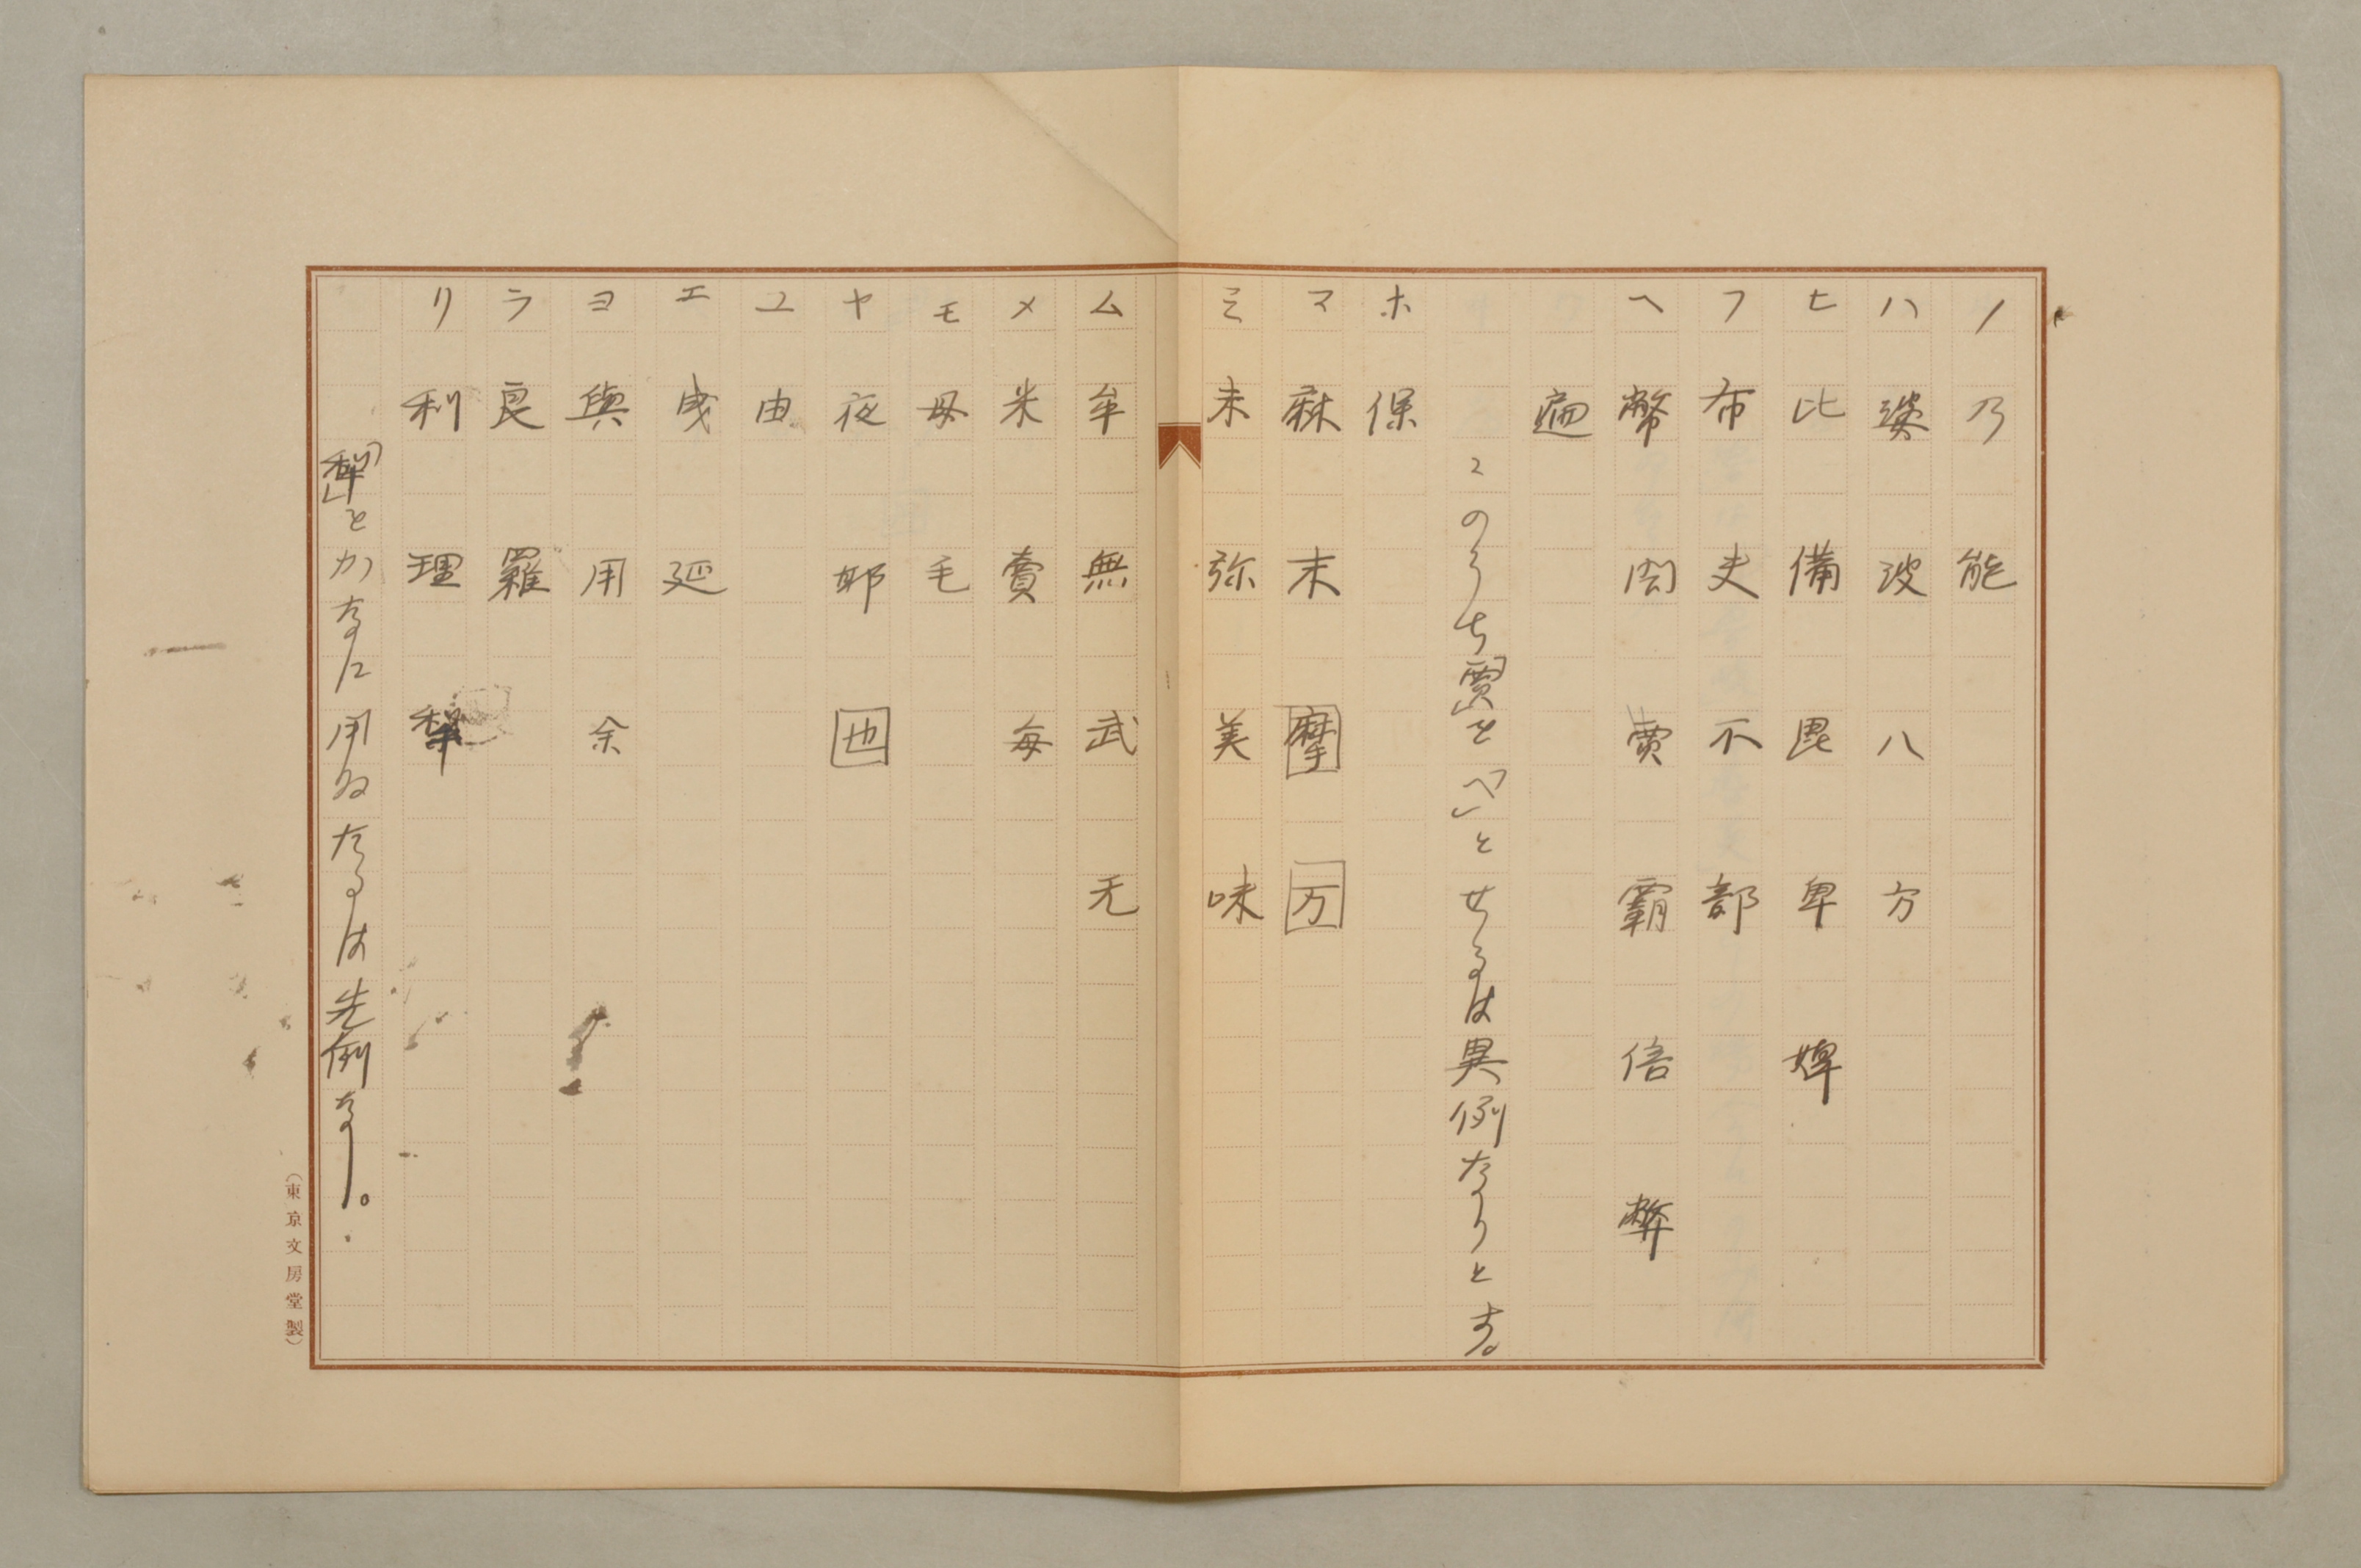 ノ 乃 能
ハ 婆 波 八 方
ヒ 比 備 毘 卑 婢
フ 布 夫 不 部
ヘ 幣 閇 賣 覇 倍 弊
遍
このうち「賣」を「ヘ」とせるは異例なりとす。
ホ 保
マ 麻 末 摩 万
ミ 未 弥 美 味
ム 牟 無 武 无
メ 米 賣 毎
モ 母 毛
ヤ 夜 耶 也
ユ 由
エ 曳 延
ヨ 與 用 余
ラ 良 羅
リ 利 理 犂
「犂」をかなに用ゐたるは先例なし。
(東京文房堂製)